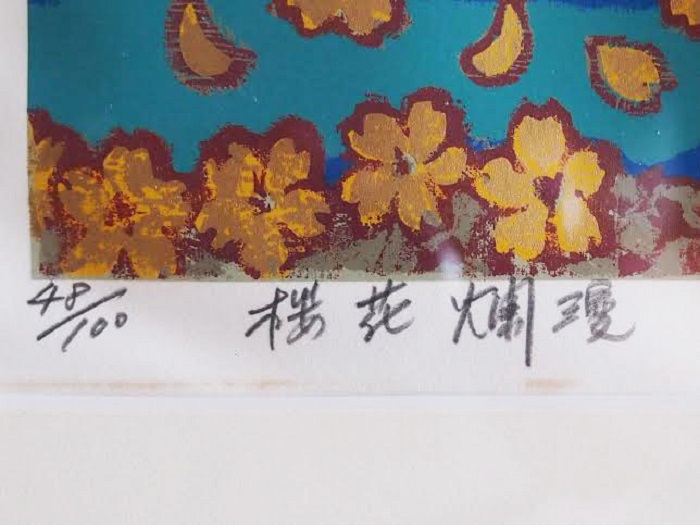 48/100 桜花爛漫